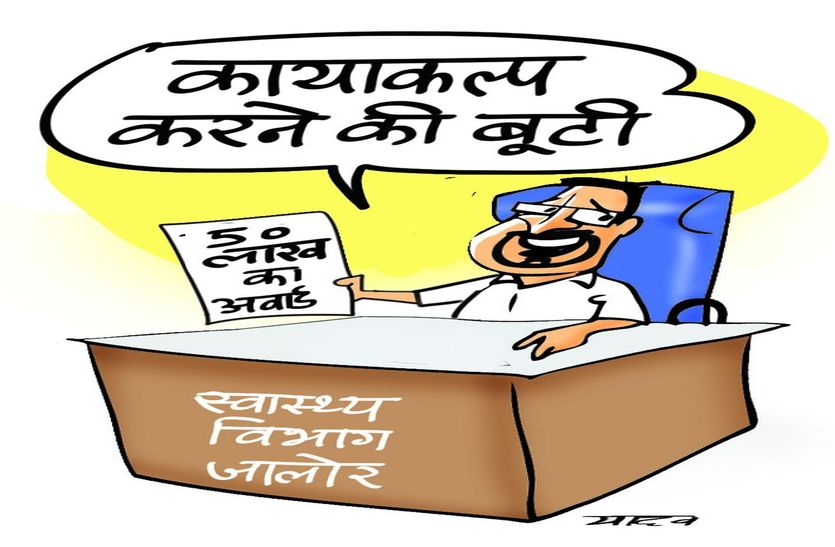 कायाकल्प
करने की बूटी
५०
लाख
का
अवार्ड
स्वास्थ्य
विभाग
जालोर
यादव